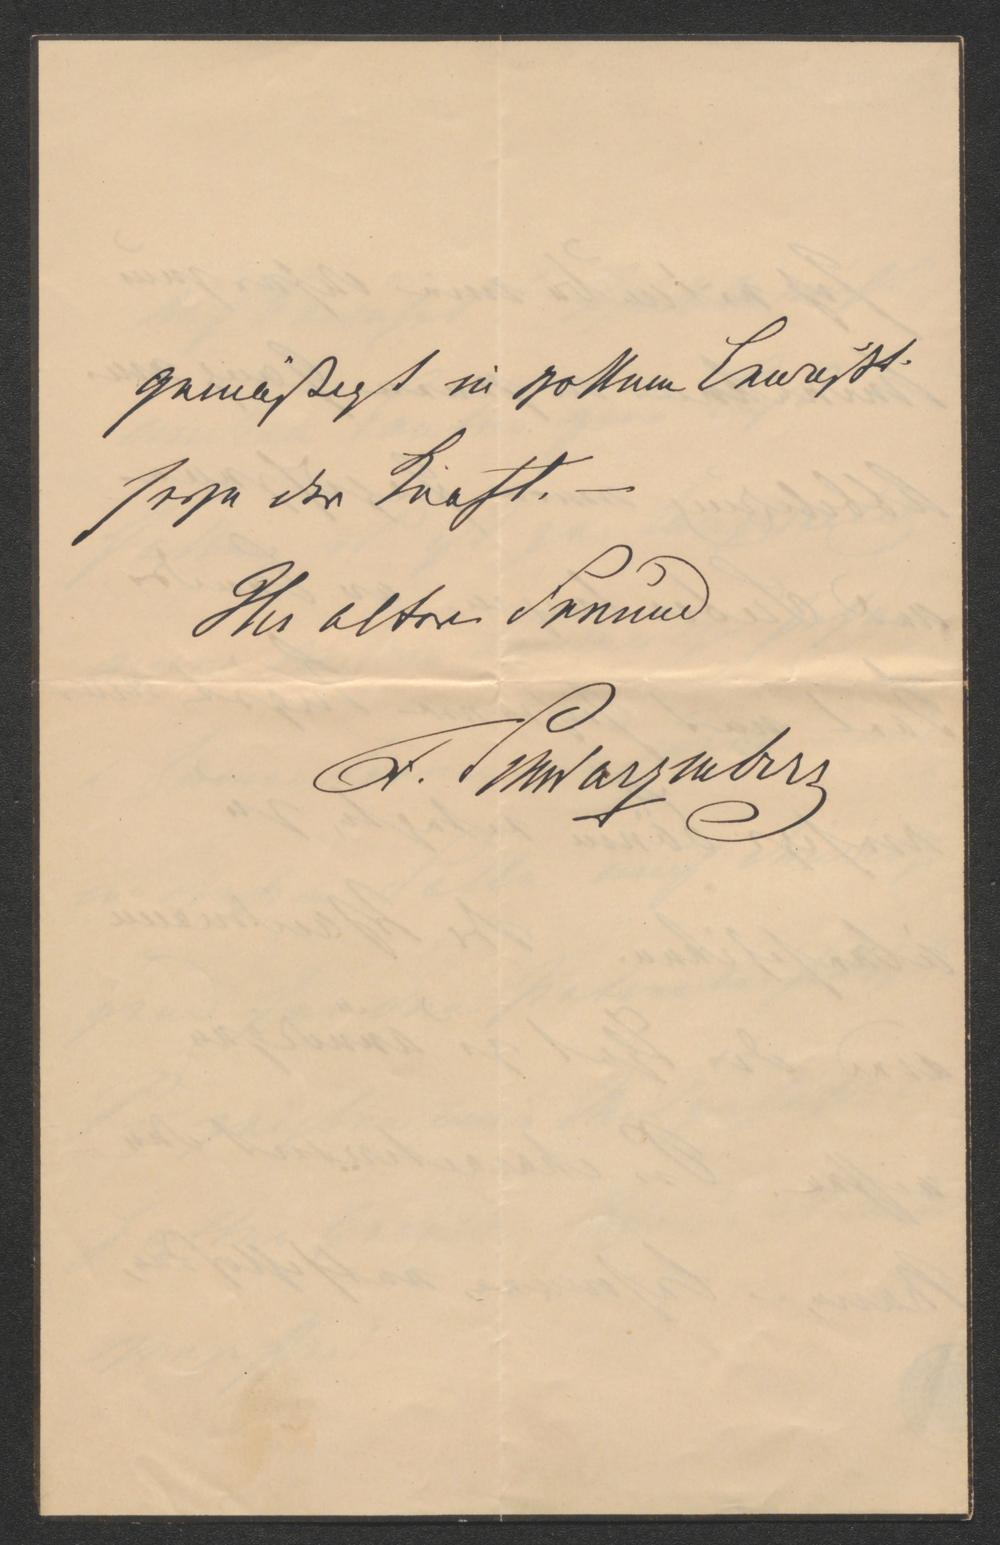 gemäßigt in vollem Bewußt-
sein der Kraft. —
Ihr alter Freund
F. Schwarzenberg